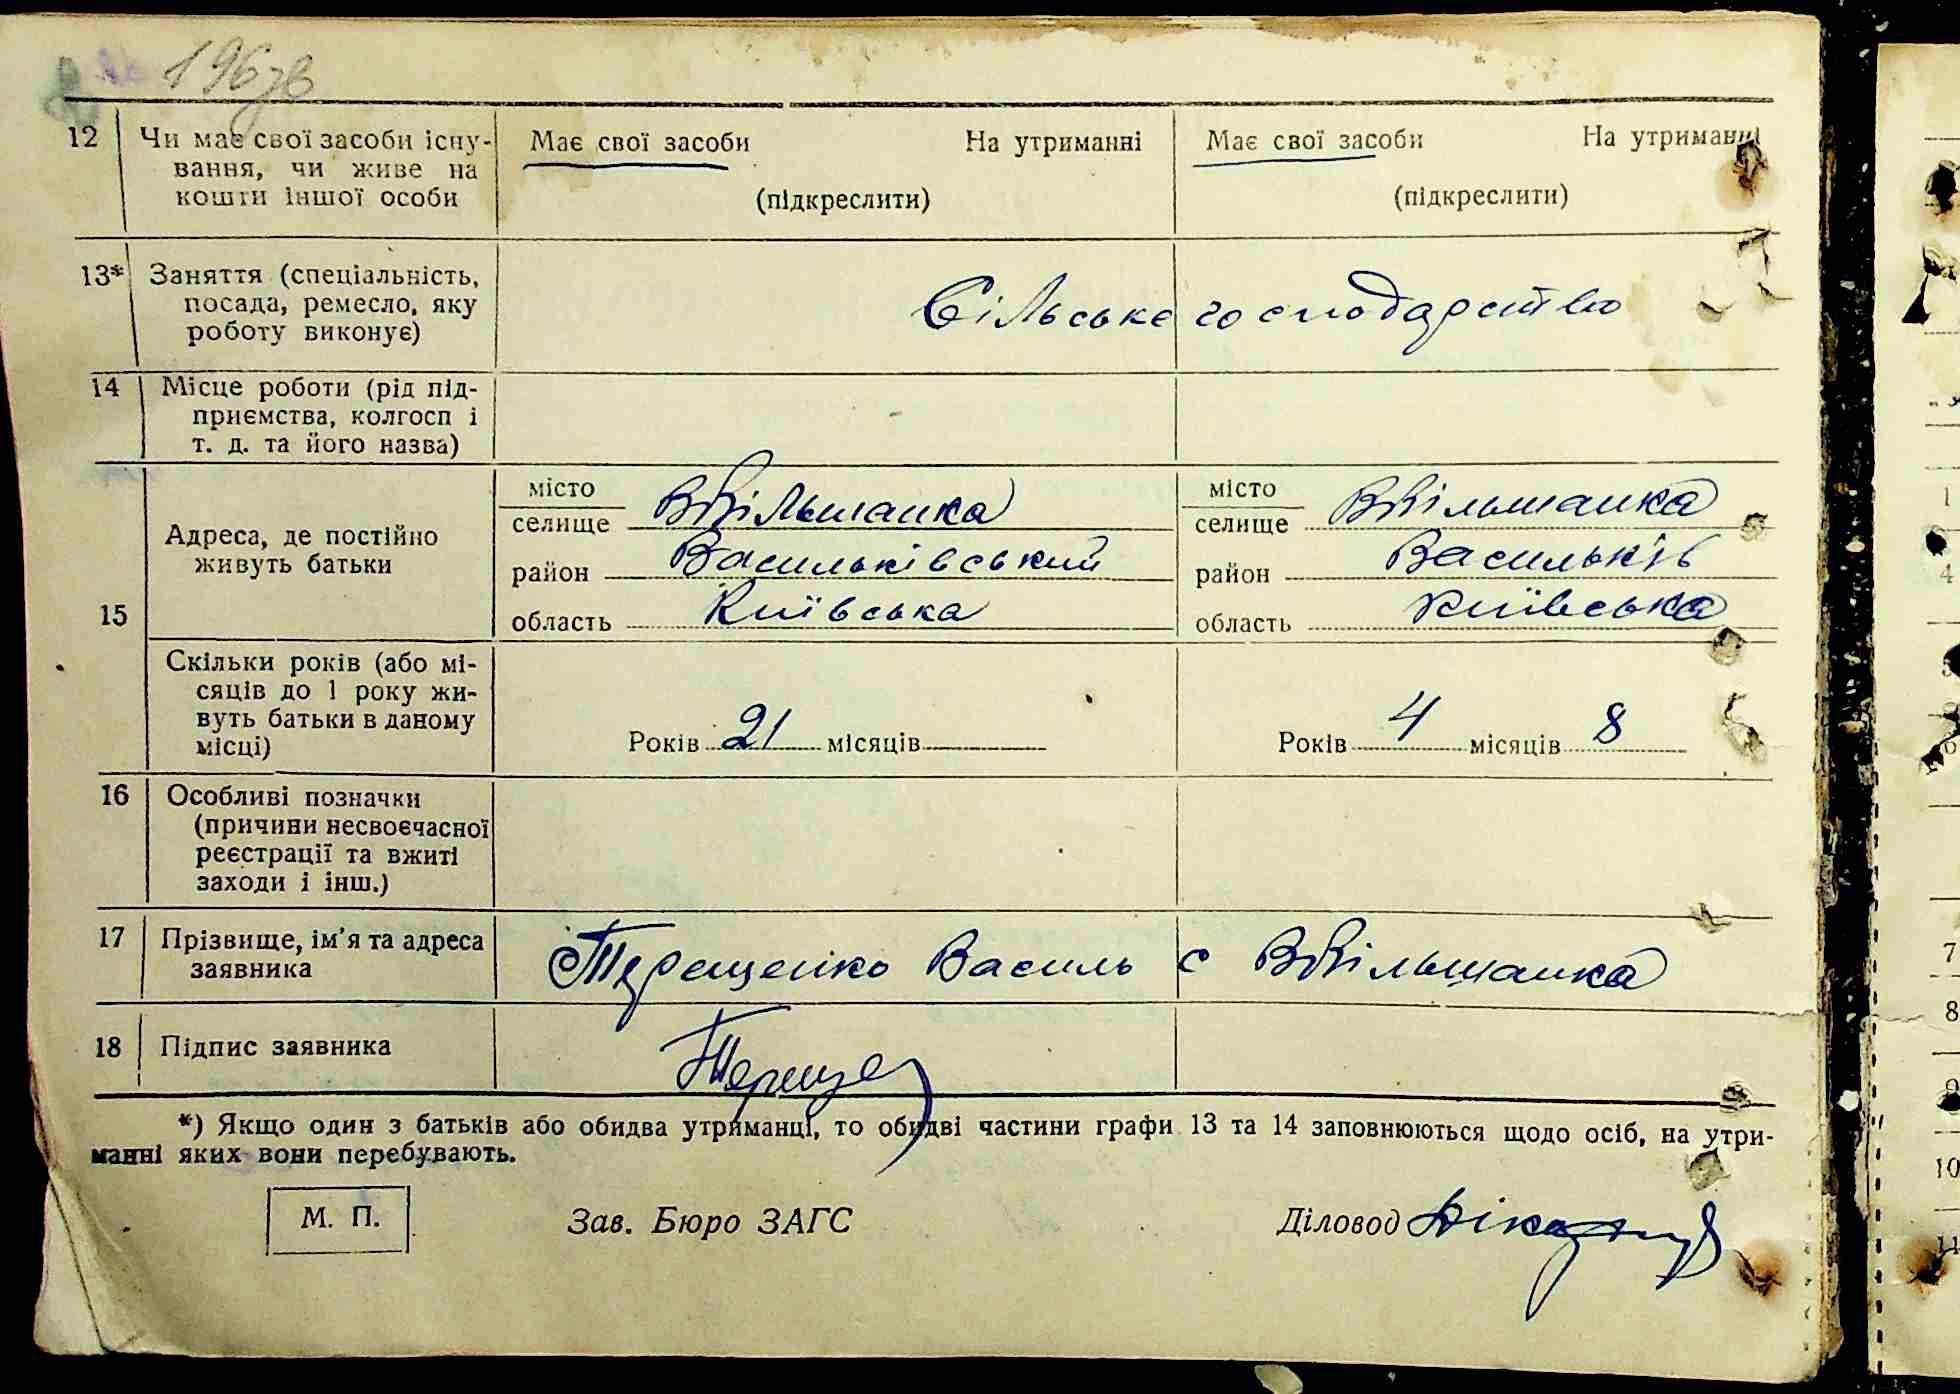 196 зв
12 Чи має свої засоби існу- Має свої засоби На утриманні Має свої засоби На утриманні
вання, чи живе на
кошти іншої особи (підкреслити) (підкреслити)
13* Заняття (спеціальність,
посада, ремесло, яку Сільське господарство
роботу виконує)
14 Місце роботи (рід під-
приємства, колгосп і
т. д. та його назва)
15 Адреса, де постійно
живуть батьки
місто
селище ВВільшанка
район Васильківський
область Київська
місто
селище ВВільшанка
район Васильків
область Київська
Скільки років (або мі-
сяців до 1 року жи-
вуть батьки в даному
місці)
Років 21 місяців
Років 4 місяців 8
16 Особливі позначки
(причини несвоєчасної
реєстрації та вжиті
заходи і інш.)
17 Прізвище, ім'я та адреса
заявника
Терещенко Василь с ВВільшанка
18 Підпис заявника
*) Якщо один з батьків або обидва утриманці, то обидві частини графи 13 та 14 заповнюються щодо осіб, на утри-
манні яких вони перебувають.
М. П. Зав. Бюро ЗАГС Діловод